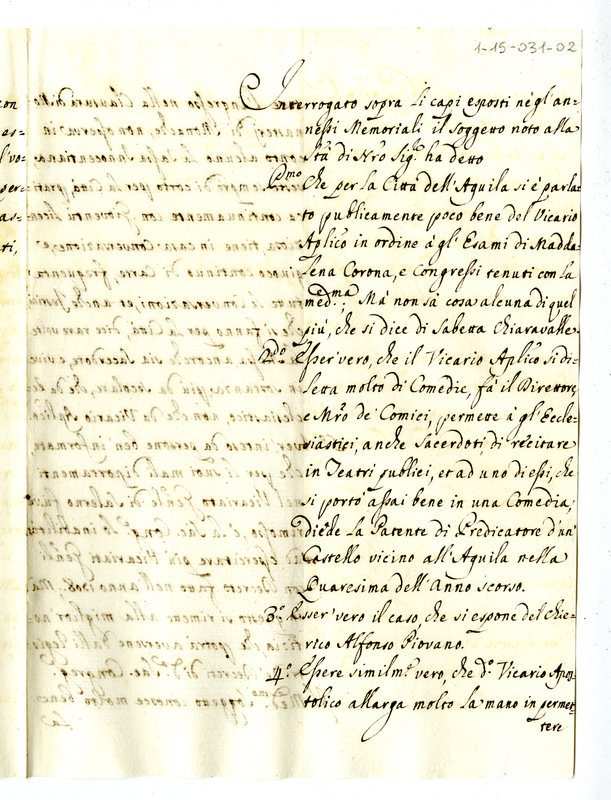 1-15-031-02
Interrogato sopra li capi esposti nè gl'an=
nessi Memoriali il soggetto noto alla
Stà di Nrò Sigre ha detto
Pmo Che per la Città dell'Aquila si è parla=
to publicamente poco bene del Vicario
Aplico in ordine à gl'Esami di Madda=
lena Corona, e Congressi tenuti con la
medma; Mà non sà cosa alcuna di quel
più, che si dice di Sabetta Chiaravalle.
2do Esser vero, che il Vicario Aplico si di=
letta molto di Comedie, fà il Direttore,
e Mro de' Comici, permette à gl'Eccle=
siastici, anche Sacerdoti, di recitare
in Teatri publici, et ad uno di essi, che
si portò assai bene in una Comedia,
diede la Patente di Predicatore d'un
Castello vicino all'Aquila nella
Quaresima dell'Anno scorso.
3o Esser vero il caso, che si espone del Chie=
rico Alfonso Piovano.
4o Essere similmte vero, che do Vicario Apos=
tolico allarga molto la mano in permet=
tere
con
es=
l'vo=
per=
as=
ti,